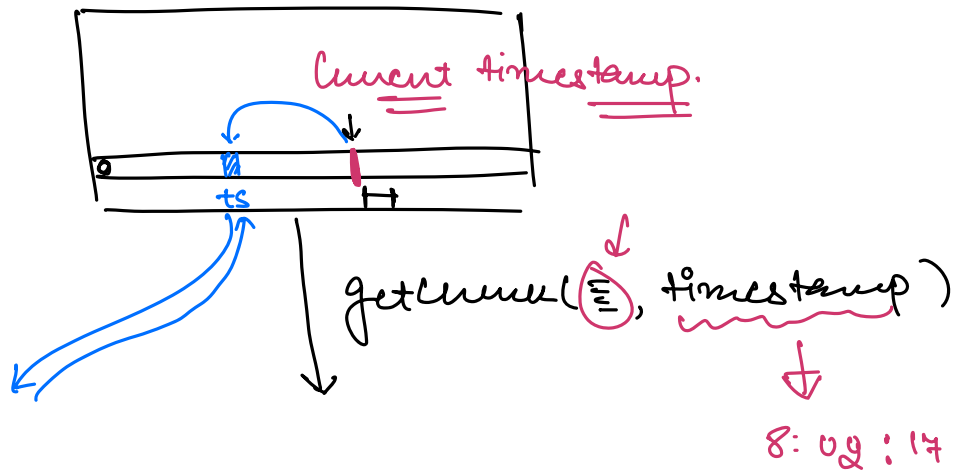 Current timestamp.
0
ts
getChunk(Ξ, timestamp)
8:09:17